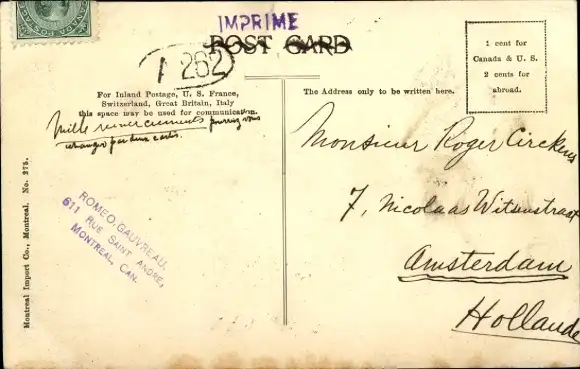 IMPRIME
POST CARD
262
1 cent for
Canada & U. S.
2 cents for
abroad.
For Inland Postage, U. S. France,
Switzerland, Great Britain, Italy
this space may be used for communication.
The Address only to be written here.
Mille remerciements pourriez vous
echanger par deux cartes.
Monsieur Roger Circkens
7, Nicolaas Witsenstraat
Amsterdam
Hollande
ROMEO. GAUVREAU.
611 RUE SAINT ANDRE,
MONTREAL, CAN.
Montreal Import Co., Montreal. No. 275.